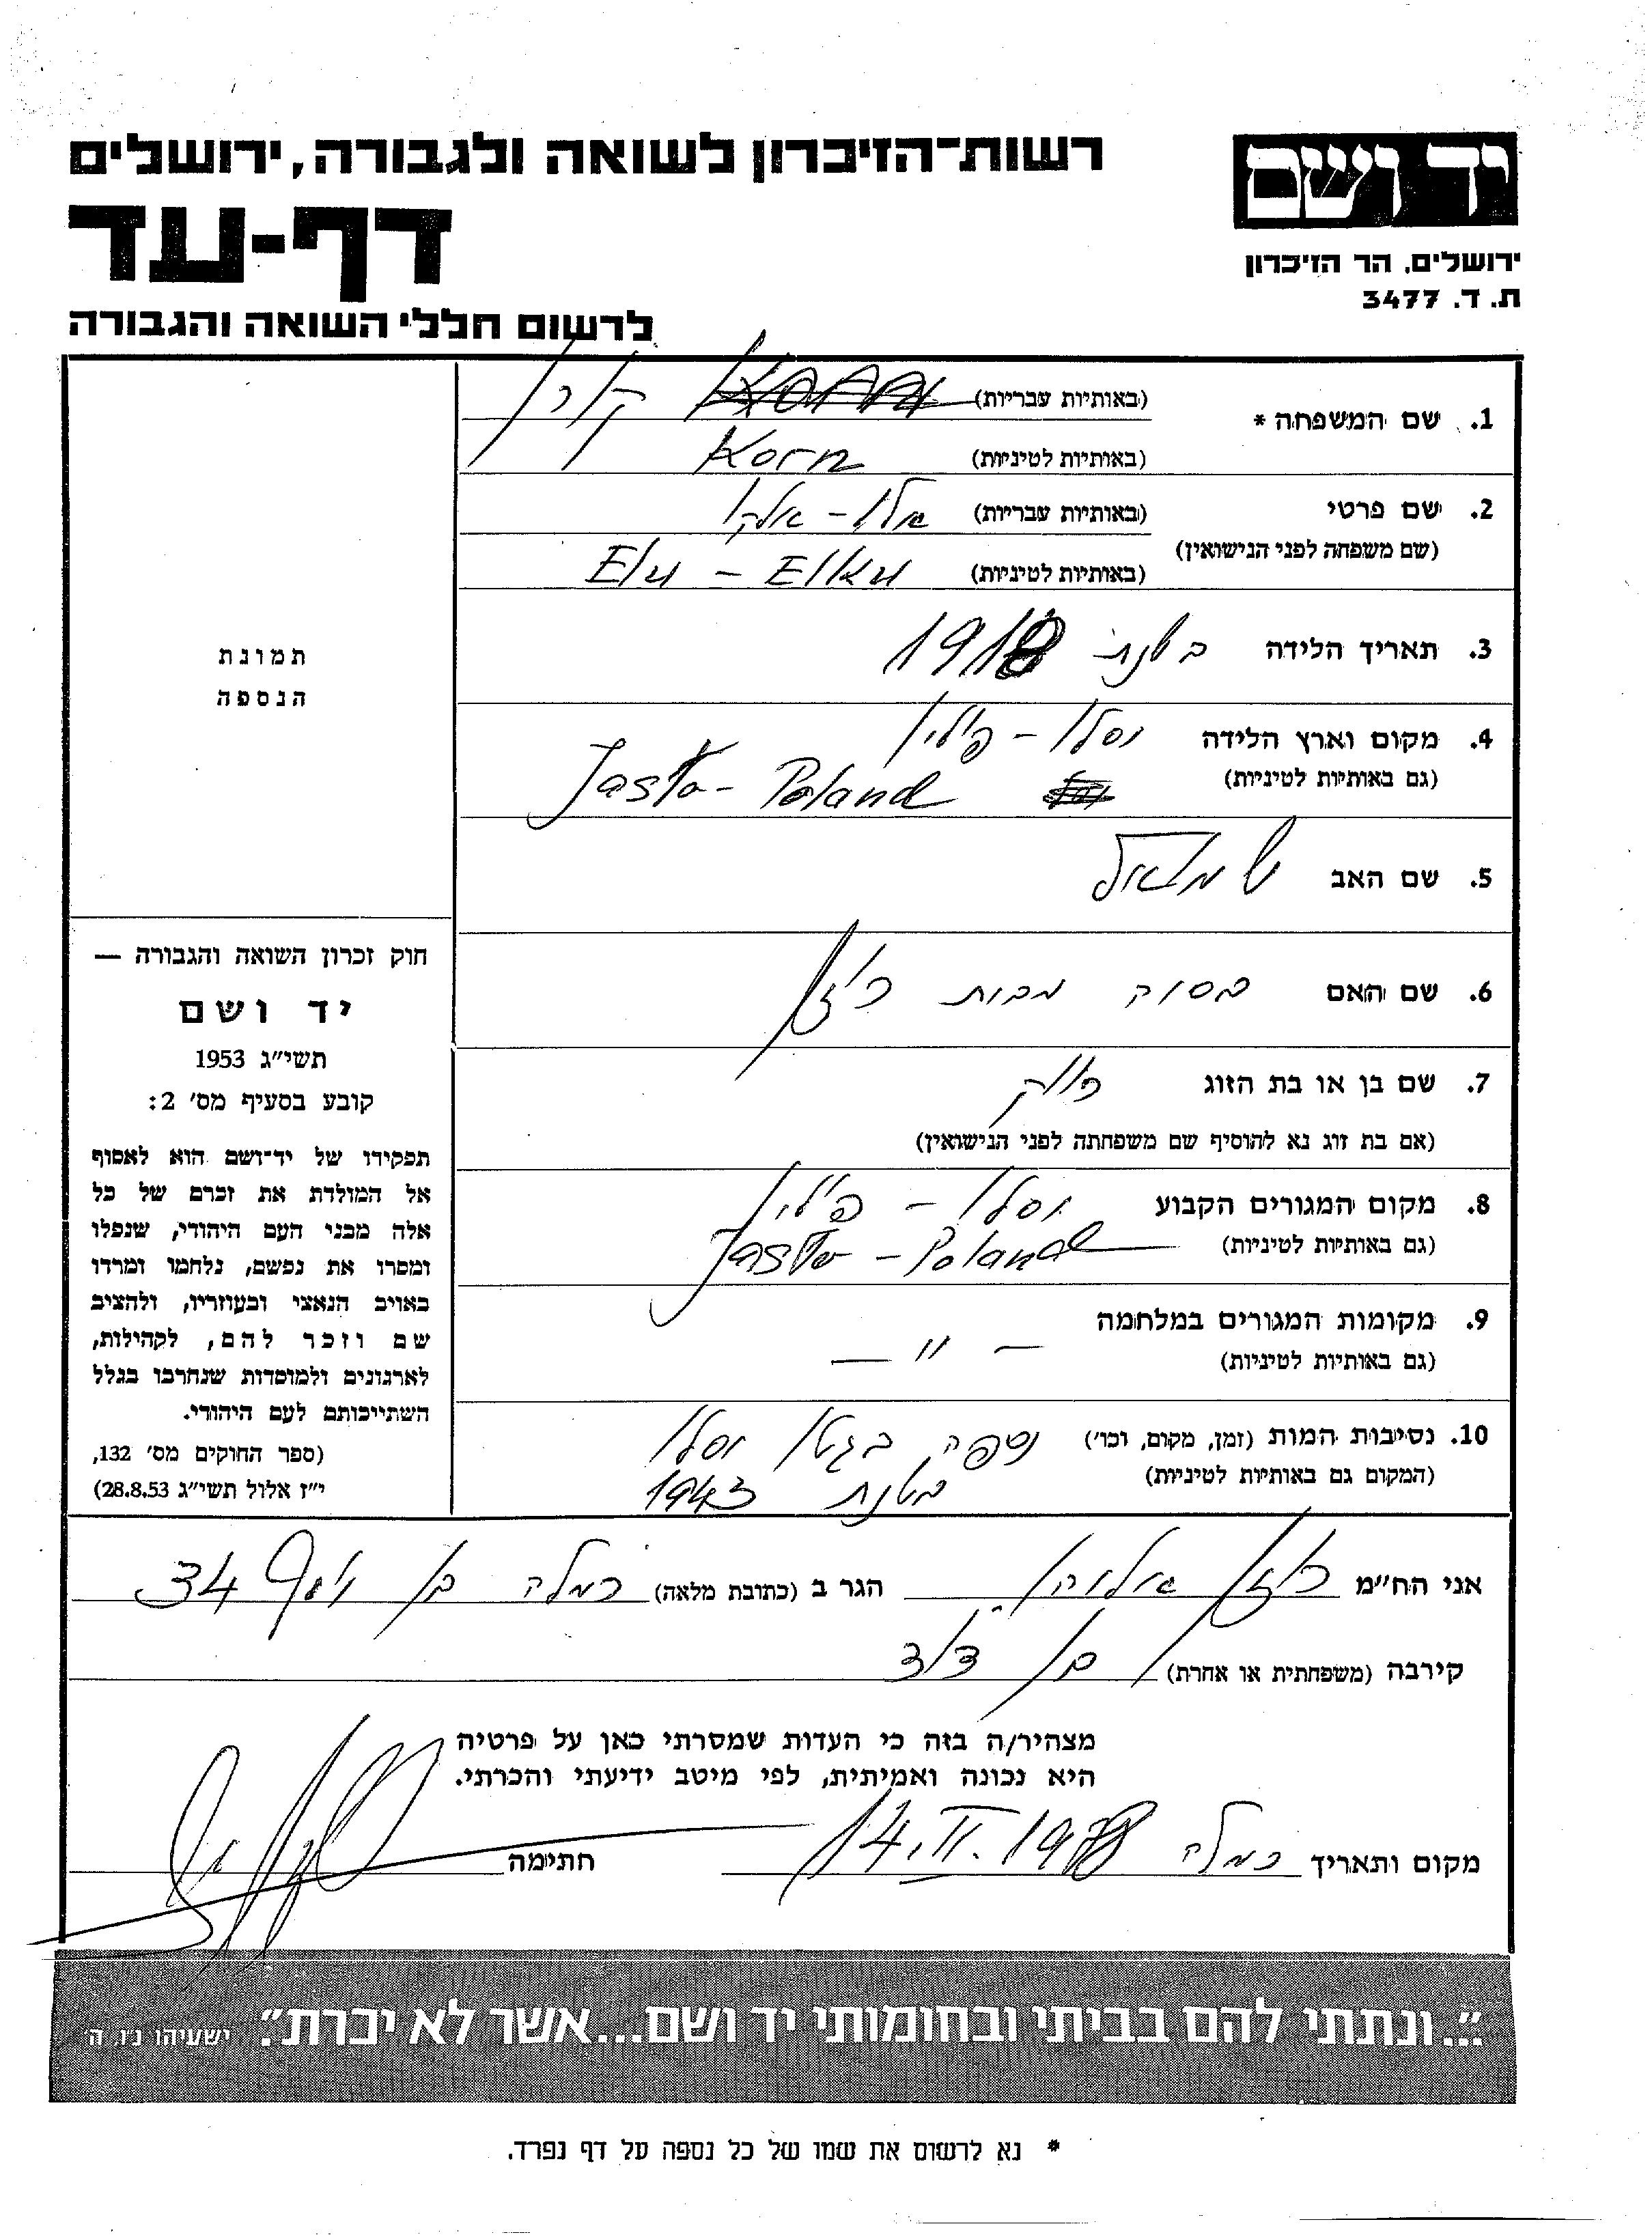 רשות־הזיכרון לשואה ולגבורה, ירושלים
יד ושם
דף-עד
ירושלים, הר הזיכרון
ת. ד. 3477
לרשום חללי השואה והגבורה
1. שם המשפחה * (באותיות עבריות) קורן
(באותיות לטיניות) Korn
2. שם פרטי (באותיות עבריות)
(שם משפחה לפני הנישואין)
(באותיות לטיניות)
3. תאריך הלידה בשנת 1918
4. מקום וארץ הלידה יסלו - פולין
(גם באותיות לטיניות) Jasło - Poland
5. שם האב שמואל
6. שם האם מבית רוזן
7. שם בן או בת הזוג
(אם בת זוג נא להוסיף שם משפחתה לפני הנישואין)
8. מקום המגורים הקבוע יסלו - פולין
(גם באותיות לטיניות) Jasło - Poland
9. מקומות המגורים במלחמה — " —
(גם באותיות לטיניות)
10. נסיבות המות (זמן, מקום, וכו') נספה בגטו יסלו
(המקום גם באותיות לטיניות) בשנת 1943
תמונת
הנספה
חוק זכרון השואה והגבורה —
יד ושם
תשי״ג 1953
קובע בסעיף מס׳ 2:
תפקידו של יד־ושם הוא לאסוף
אל המולדת את זכרם של כל
אלה מבני העם היהודי, שנפלו
ומסרו את נפשם, נלחמו ומרדו
באויב הנאצי ובעוזריו, ולהציב
שם וזכר להם, לקהילות,
לארגונים ולמוסדות שנחרבו בגלל
השתייכותם לעם היהודי.
(ספר החוקים מס׳ 132,
י״ז אלול תשי״ג 28.8.53)
אני הח״מ רוזן הגר ב (כתובת מלאה) רמלה 34
קירבה (משפחתית או אחרת) בן דוד
מצהיר/ה בזה כי העדות שמסרתי כאן על פרטיה
היא נכונה ואמיתית, לפי מיטב ידיעתי והכרתי.
מקום ותאריך רמלה 14.II.1978 חתימה
"...ונתתי להם בביתי ובחומותי יד ושם...אשר לא יכרת". ישעיהו נ״ו, ה
* נא לרשום את שמו של כל נספה על דף נפרד.